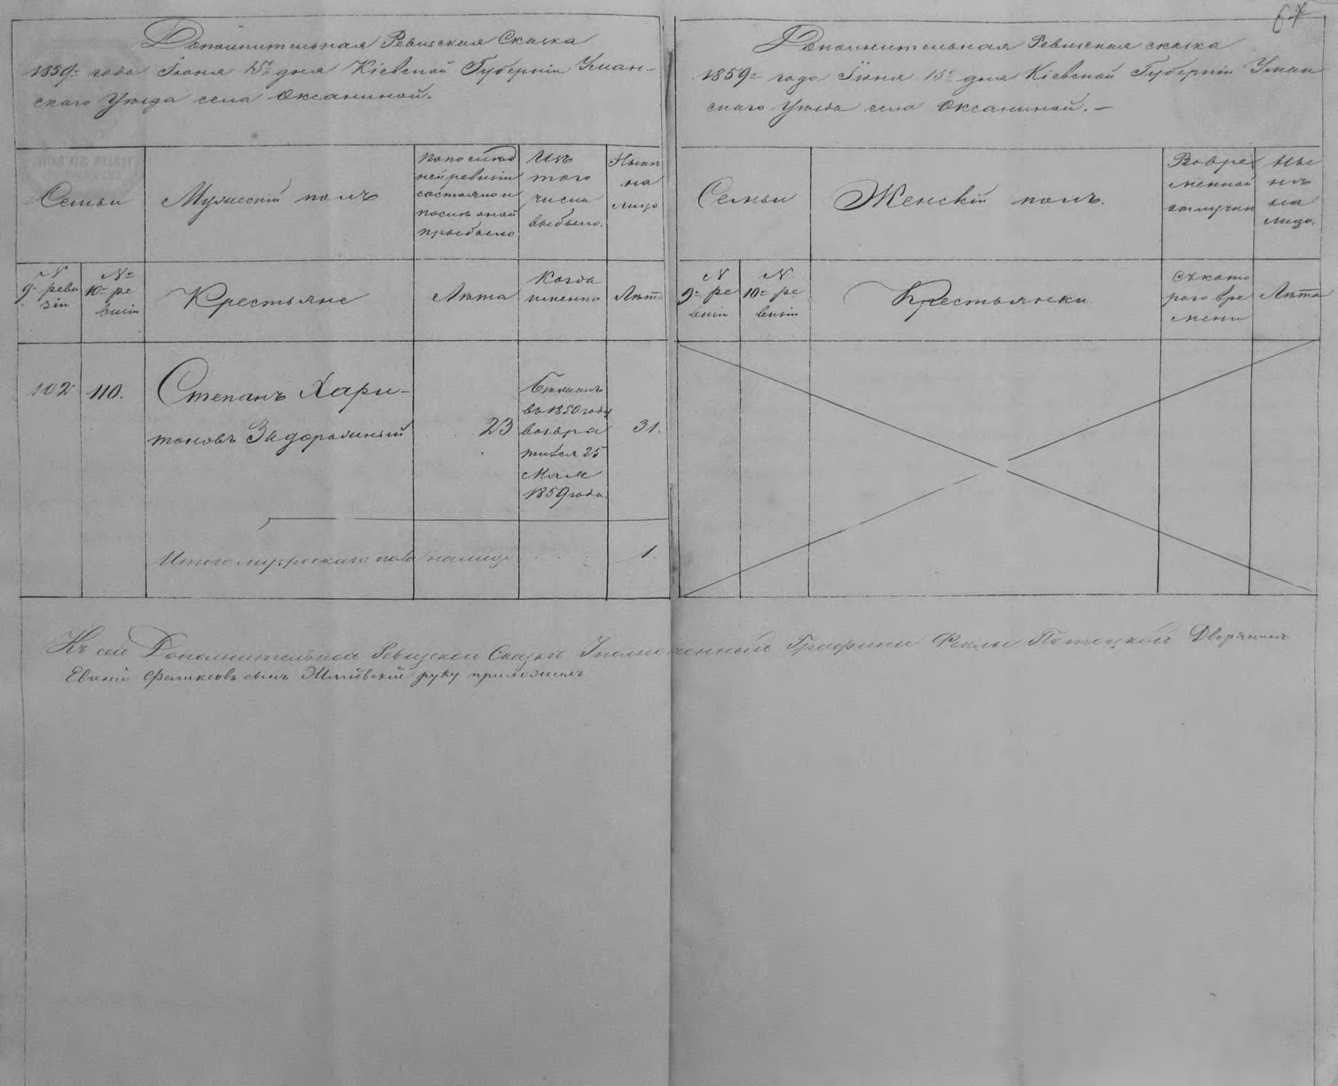 67
Дополнительная Ревизская Сказка
1859го года Іюня 15го дня Кіевской Губерніи Уман-
скаго Уезда села Оксаниной.
Семьи
Мужескій полъ
По послѣд
ней ревизіи
состояло и
послѣ оной
прибыло
Изъ
того
числа
выбыло.
Нынѣ
на
лицо
N
9й реви
зіи
№
10й ре
визіи
Крестьяне
Лѣта
Когда
именно
Лѣта
102
110.
Степанъ Хари-
тоновъ Задорожный
23
Бѣжалъ
въ 1850 году
возвра
тился 25
Мая
1859 года.
31.
Итого мужескаго пола на лицо
1.
Дополнительная Ревизская сказка
1859го года Іюня 15го дня Кіевской Губерніи Уман
скаго Уезда села Оксаниной. —
Семьи
Женскій полъ.
Во вре
менной
отлучкѣ
Ны
нѣ
на
лицо.
N
9й ре
визіи
N
10й ре
визіи
Крестьянки
Съ кото
раго вре
мени
Лѣта
Къ сей Дополнительной Ревизской Сказкѣ Уполномоченный Графини Потоцкой Дворянинъ
Евгеній Феликсовъ сынъ руку приложилъ.